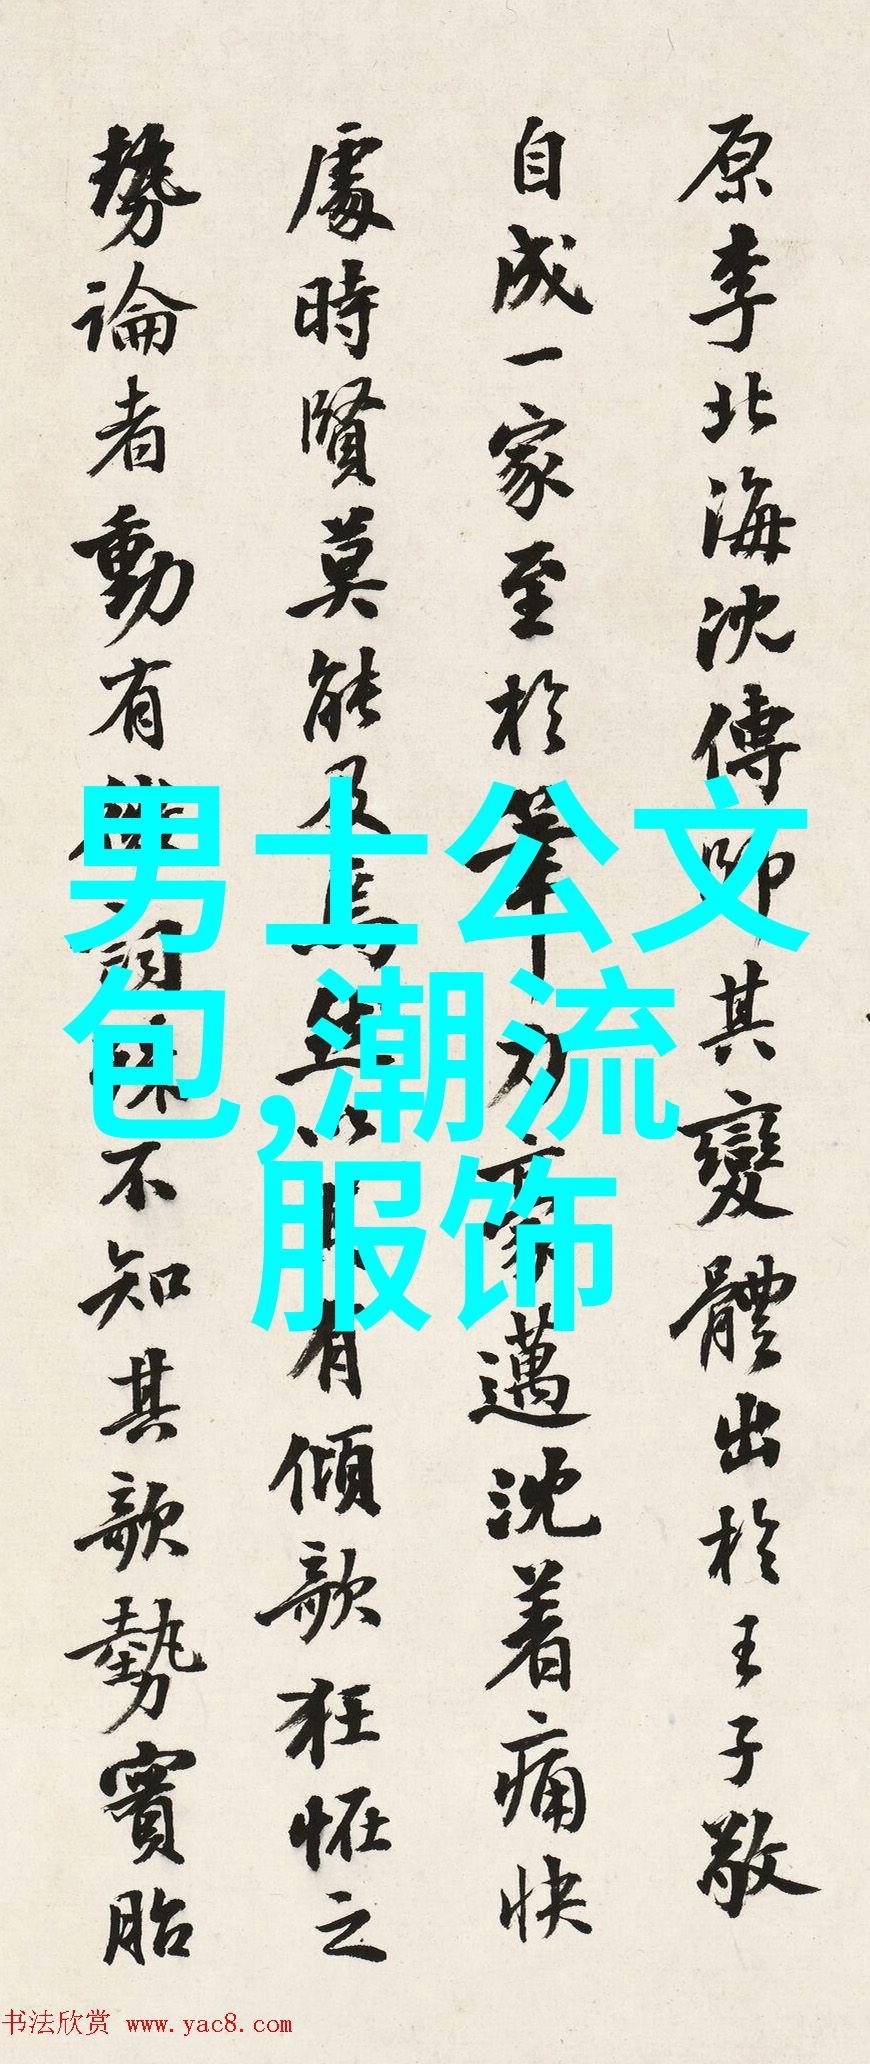 原李北海沈傳師其變體出於王子敬
自成一家至於筆力豪邁沈着痛快
處時賢莫能及焉然以時有傾欹狂怪之
勢論者動有微詞殊不知其欹勢實胎
男士公文
包,潮流
服饰
书法欣赏 www.yac8.com